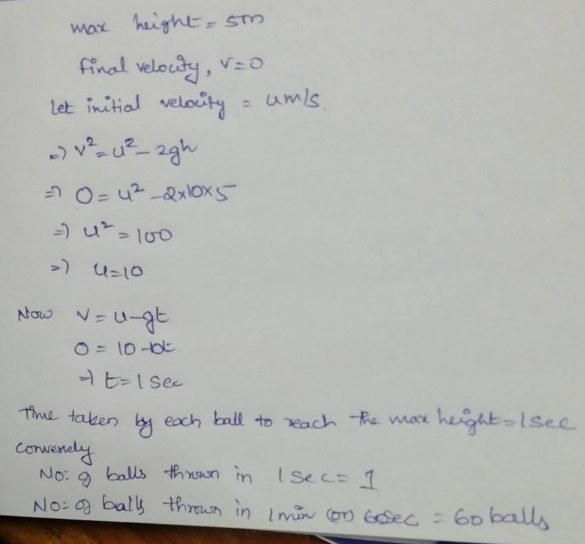 max height = 5m
final velocity, v=0
Let initial velocity = u m/s.
=) v² = u² - 2gh
=) 0 = u² - 2x10x5
=) u² = 100
=) u=10
Now v = u-gt
0 = 10-10t
=) t=1 sec
Time taken by each ball to reach the max height = 1 sec
conversely
No: of balls thrown in 1 Sec = 1
No: of balls thrown in 1 min (or) 60sec = 60 balls